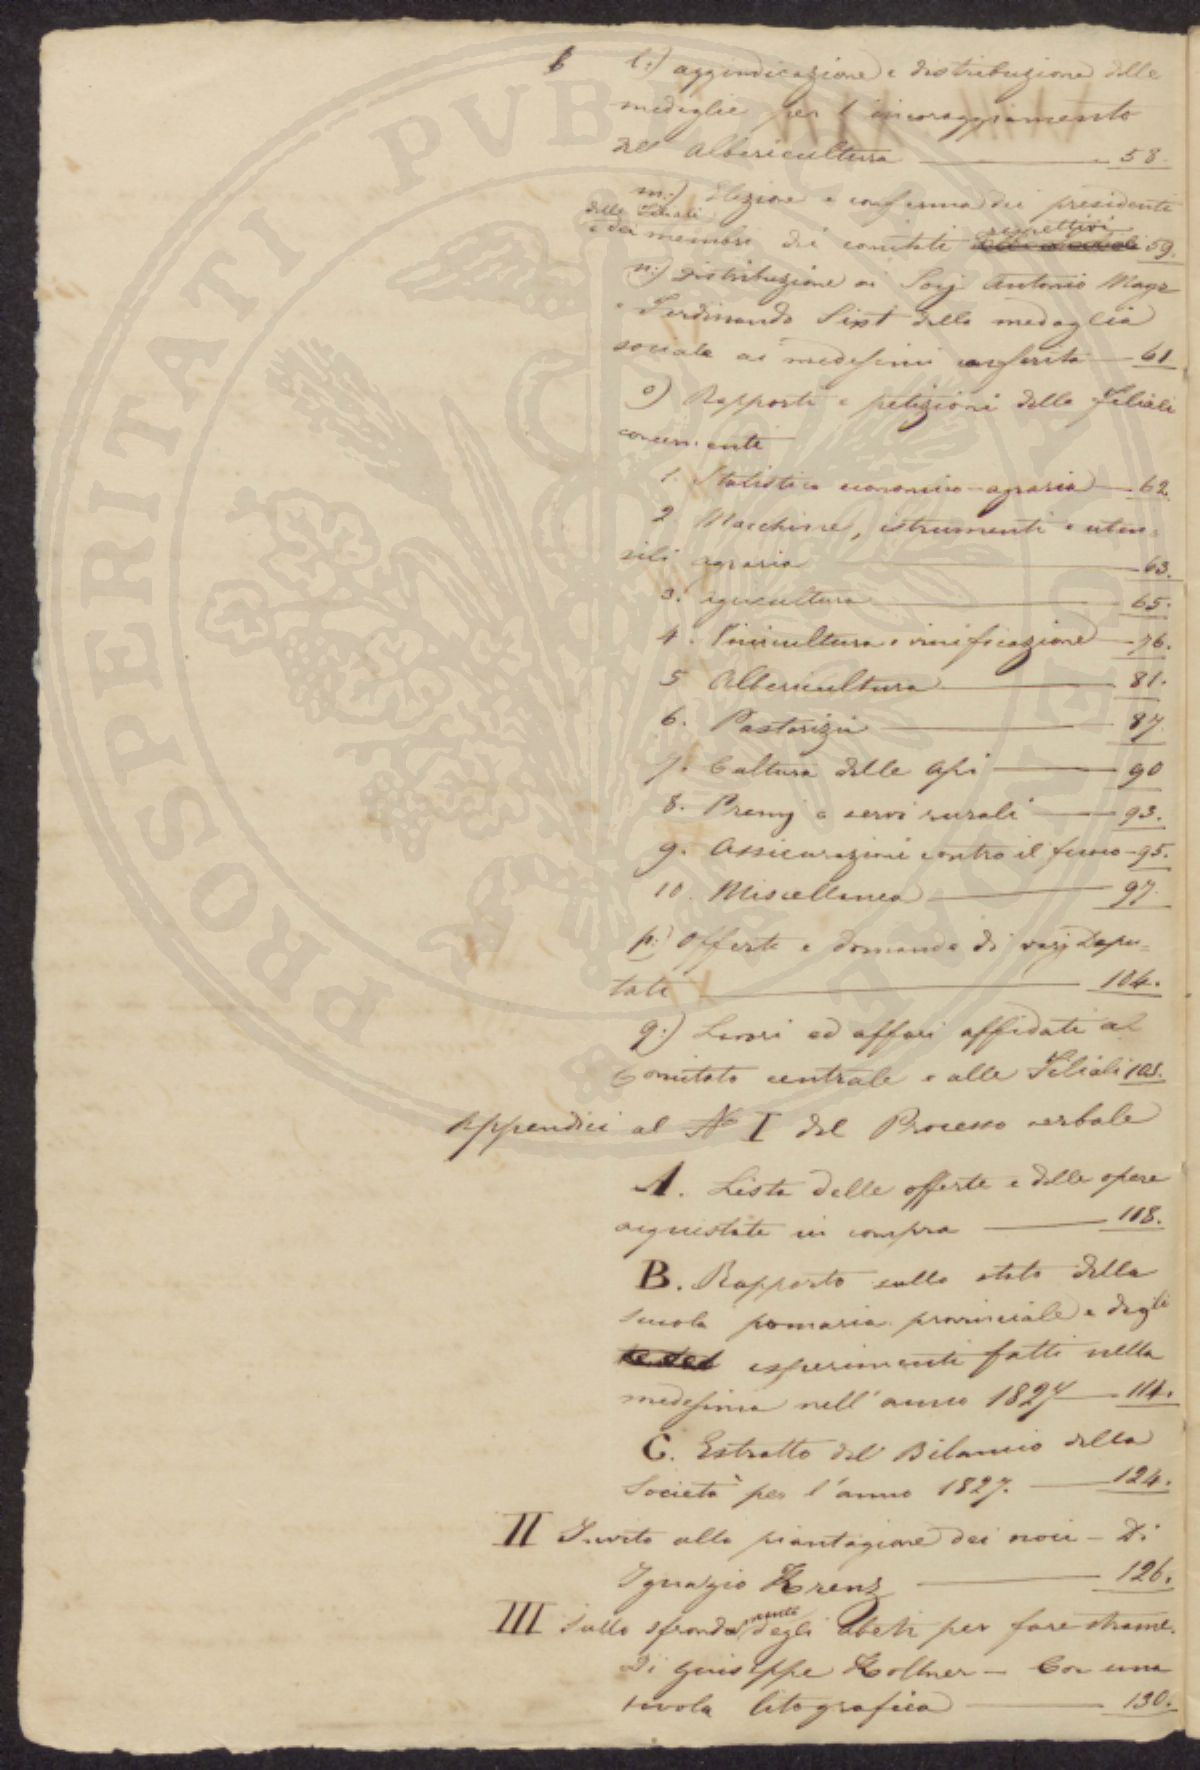 l.) aggiudicazione e distribuzione delle
medaglie per l'incoraggiamento
del Albericultura — 58.
m.) Elezione e conferma dei presidenti
delle Filiali
e dei membri dei comitati rispettivi 59.
n.) Distribuzione ai Sig. Antonio Mayr
e Ferdinando Sixt della medaglia
sociale ai medesimi conferita — 61
o) Rapporti e petizioni delle Filiali
concernenti
1. Statistica economico-agraria — 62
2. Macchine, istrumenti e uten=
sili agraria — 63.
3. agricultura — 65.
4. Vinicultura e vinificazione — 76.
5 Albericultura — 81.
6. Pastorizia — 87.
7. Cultura delle Api — 90
8. Premj a servi rurali — 93.
9. Assicurazioni contro il fuoco — 95.
10. Miscellanea — 97.
p.) Offerte e domande di varj Depu=
tati — 104.
q.) Lavori ed affari affidati al
Comitato centrale e alle Filiali 105.
Appendici al No I del Processo verbale
A. Lista delle offerte e delle opere
acquistate in compra — 108.
B. Rapporto sullo stato della
scuola pomaria provinciale e degli
esperimenti fatti nella
medesima nell'anno 1827 — 114.
C. Estratto del Bilancio della
Società per l'anno 1827. — 124.
II Invito alla piantagione dei noci — Di
Ignazio Krenz — 126.
III Sullo sfrondamento degli Abeti per fare strame.
Di Giuseppe Kollner — Con una
tavola litografica — 130.
PROSPERITATI PVBLICAE